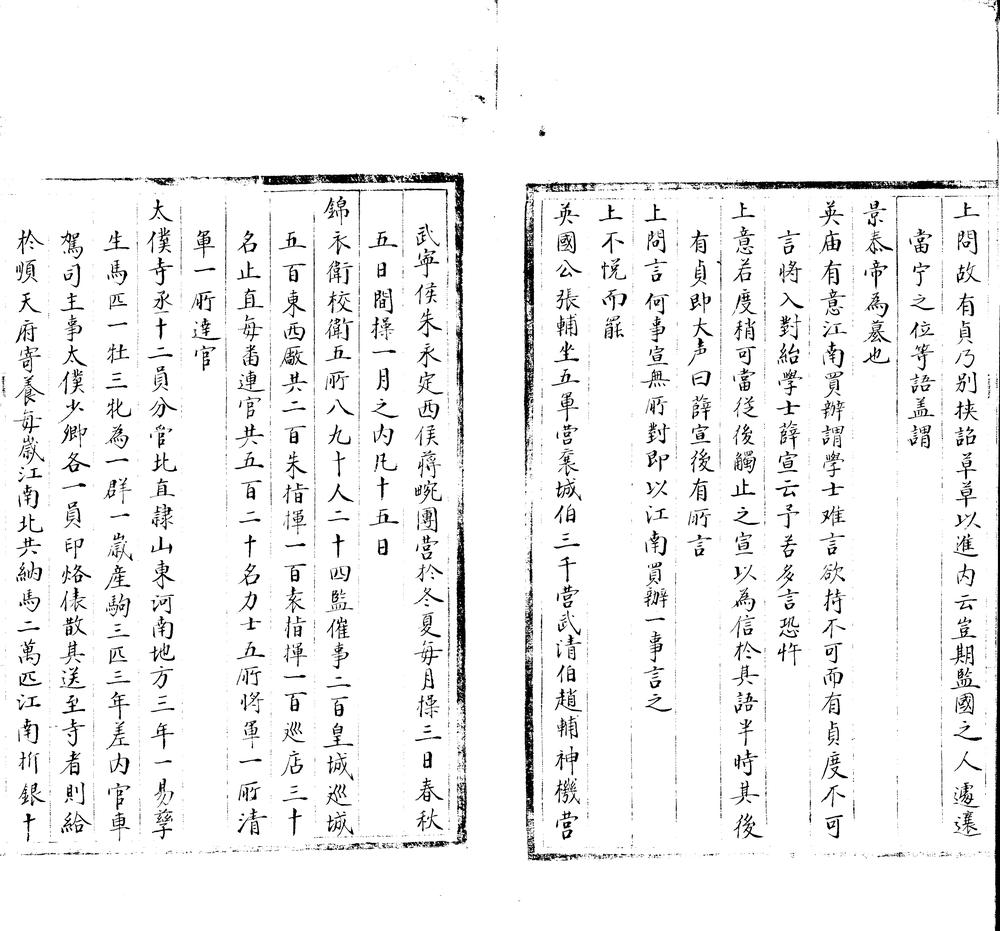 上問故有貞乃别挟詔草草以進内云豈期監國之人遽遷
當宁之位等語盖謂
景泰帝為墓也
英庙有意江南買辦謂學士难言欲持不可而有貞度不可
言將入對紿學士薛宣云予若多言恐忤
上意若度稍可當從後觸止之宣以為信於其語半時其後
有貞即大声曰薛宣後有所言
上問言何事宣無所對即以江南買辦一事言之
上不悅而罷
英國公張輔坐五軍营襄城伯三千营武清伯趙輔神機营
武寧侯朱永定西侯蒋畹團营於冬夏每月操三日春秋
五日間操一月之内凡十五日
錦衣衛校衛五所八九十人二十四監催事二百皇城巡城
五百東西厰共二百朱指揮一百袁指揮一百巡店三十
名止直每畨連官共五百二十名力士五所將軍一所清
軍一所達官
太僕寺丞十二員分管北直隷山東河南地方三年一易孳
生馬匹一牡三牝為一群一嵗産駒三匹三年差内官車
駕司主事太僕少卿各一員印烙俵散其送至寺者則給
於順天府寄養每嵗江南北共納馬二萬匹江南折銀十